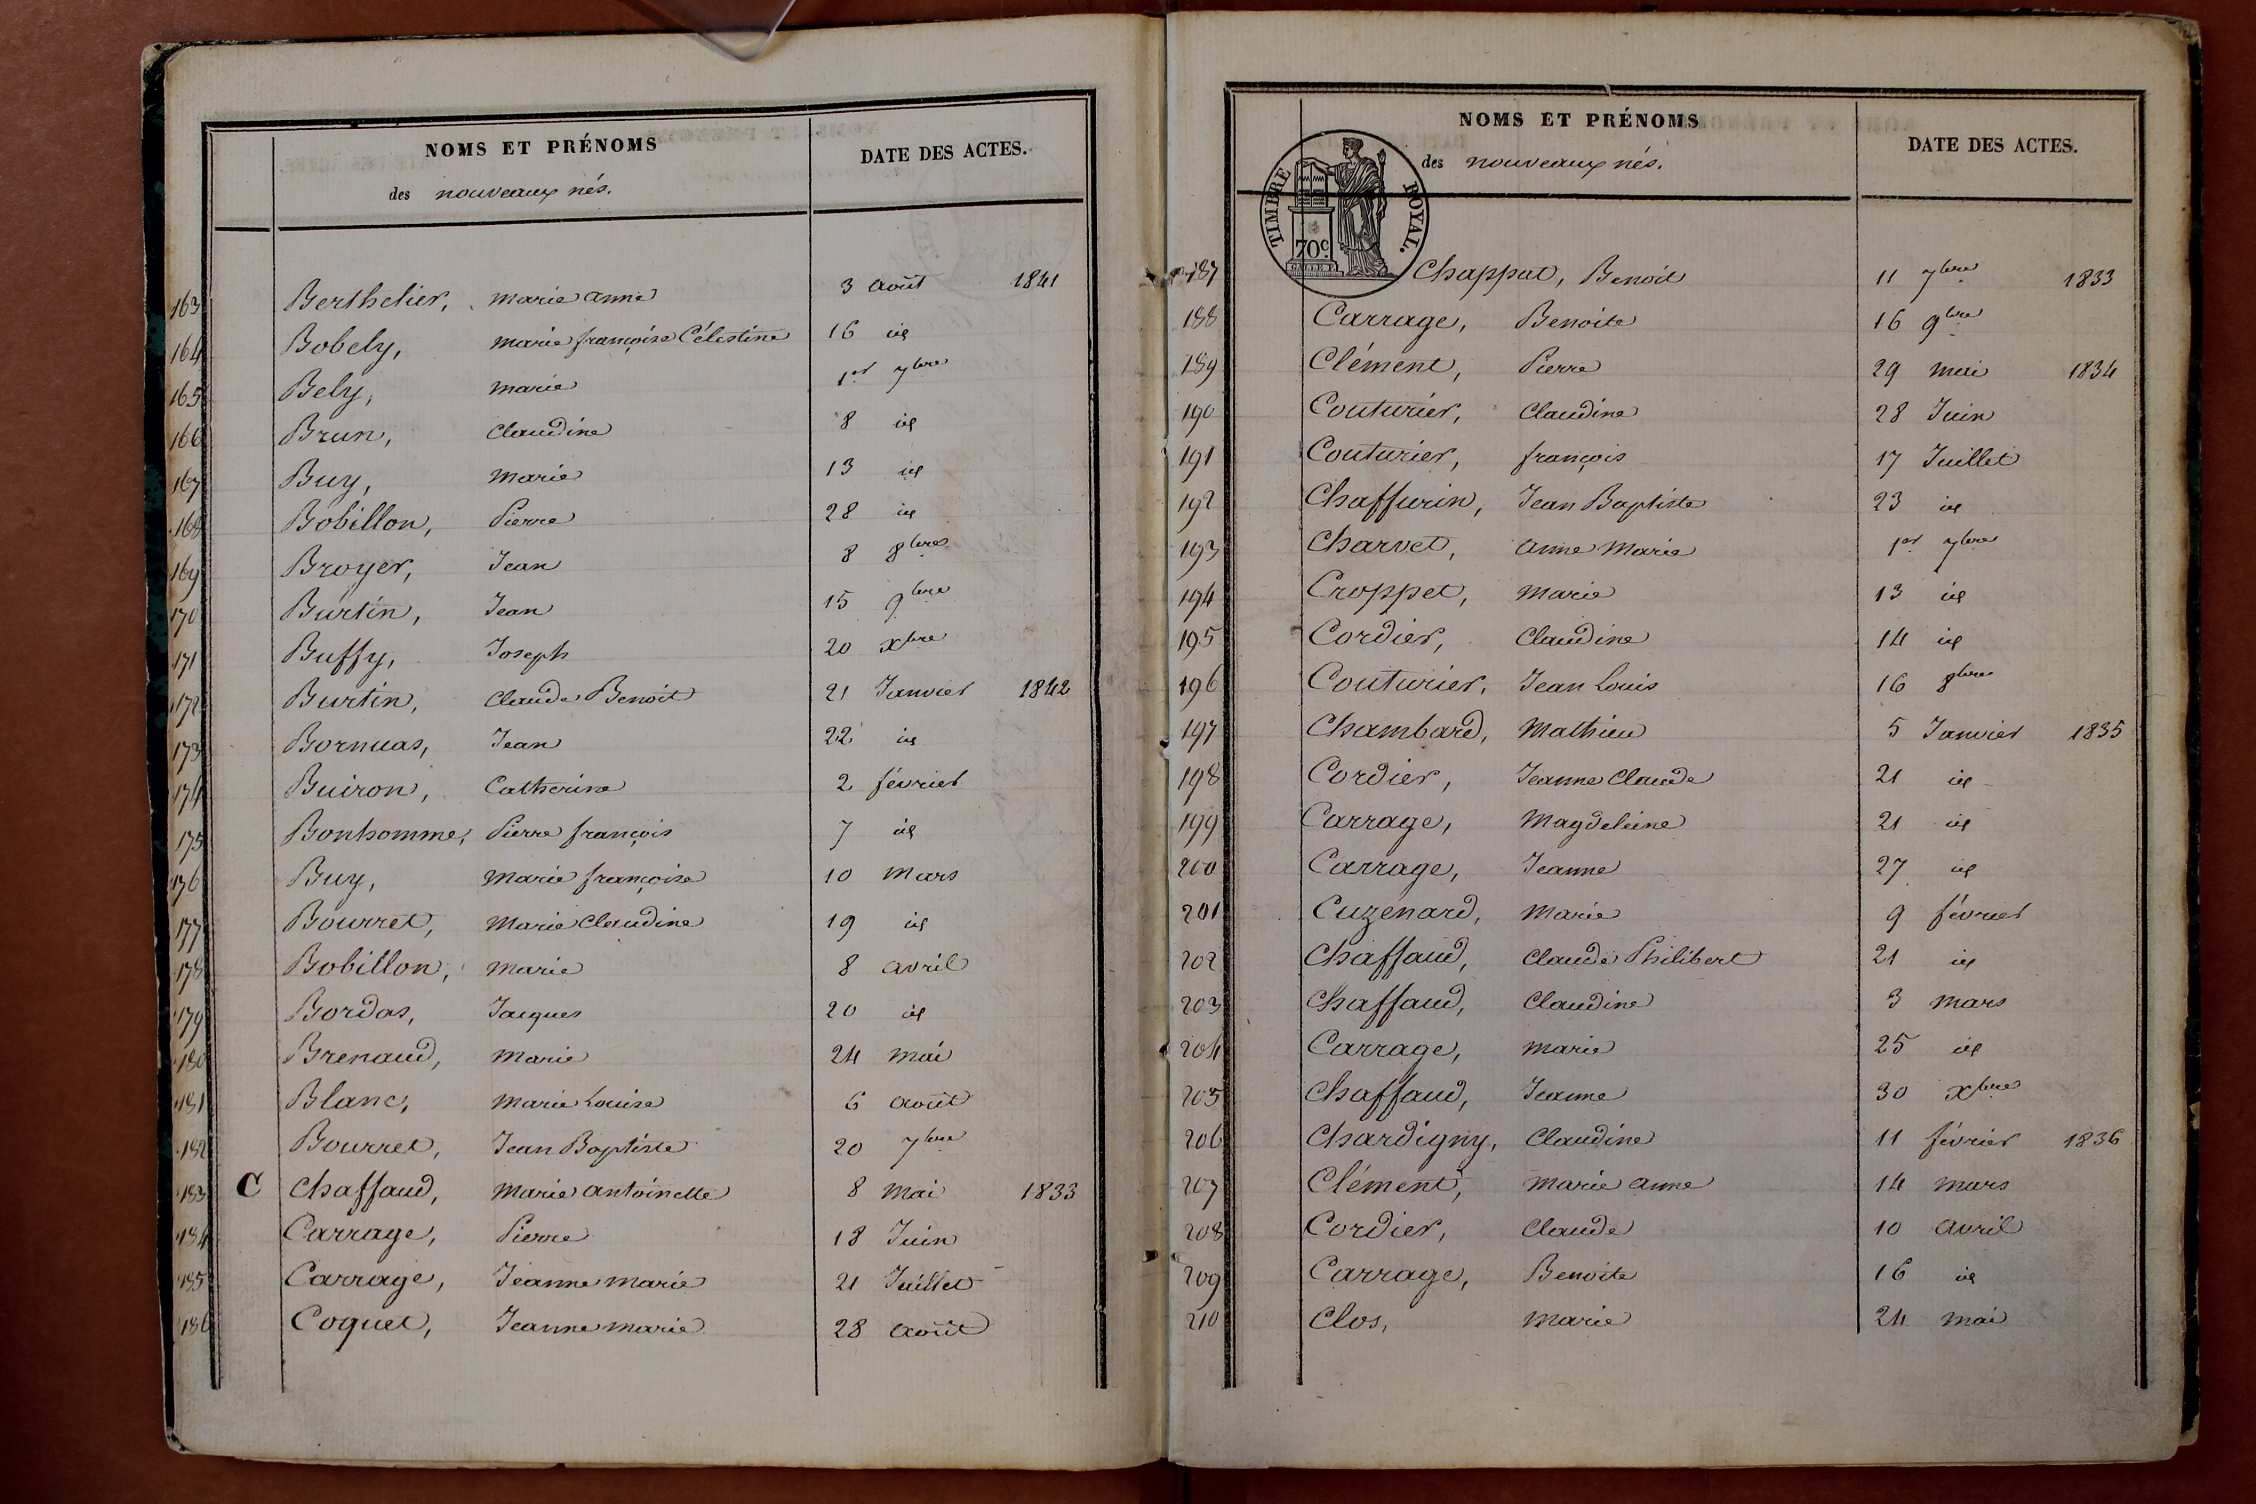 NOMS ET PRÉNOMS
des nouveaux nés.
DATE DES ACTES.
163 Berthelier, marie anne 3 août 1841
164 Bobely, marie françoise Célestine 16 id
165 Bely, marie 1er 7bre
166 Brun, Claudine 8 id
167 Buy, marie 13 id
168 Bobillon, Pierre 28 id
169 Broyer, Jean 8 8bre
170 Burtin, Jean 15 9bre
171 Buffy, Joseph 20 Xbre
172 Burtin, Claude Benoit 21 Janvier 1842
173 Bornuas, Jean 22 id
174 Buiron, Catherine 2 février
175 Bonhomme, Pierre françois 7 id
176 Buy, marie françoise 10 mars
177 Bourret, Marie Claudine 19 id
178 Bobillon, marie 8 avril
179 Bordas, Jacques 20 id
180 Brenaud, marie 24 mai
181 Blanc, marie Louise 6 août
182 Bourret, Jean Baptiste 20 7bre
183 C Chaffaud, Marie antoinette 8 mai 1833
184 Carrage, Pierre 18 Juin
185 Carrage, Jeanne marie 21 Juillet
186 Coquet, Jeanne marie 28 août
NOMS ET PRÉNOMS
des nouveaux nés.
DATE DES ACTES.
TIMBRE ROYAL.
70c
187 Chappat, Benoit 11 7bre 1833
188 Carrage, Benoite 16 9bre
189 Clément, Pierre 29 mai 1834
190 Couturier, Claudine 28 Juin
191 Couturier, françois 17 Juillet
192 Chaffurin, Jean Baptiste 23 id
193 Charvet, anne Marie 1er 7bre
194 Croppet, marie 13 id
195 Cordier, Claudine 14 id
196 Couturier, Jean Louis 16 8bre
197 Chambard, Mathieu 5 Janvier 1835
198 Cordier, Jeanne Claude 21 id
199 Carrage, Magdeleine 21 id
200 Carrage, Jeanne 27 id
201 Cuzenard, marie 9 février
202 Chaffaud, Claude Philibert 21 id
203 Chaffaud, Claudine 3 mars
204 Carrage, marie 25 id
205 Chaffaud, Jeanne 30 Xbre
206 Chardigny, Claudine 11 février 1836
207 Clément, marie anne 14 mars
208 Cordier, Claude 10 avril
209 Carrage, Benoite 16 id
210 Clos, marie 24 mai